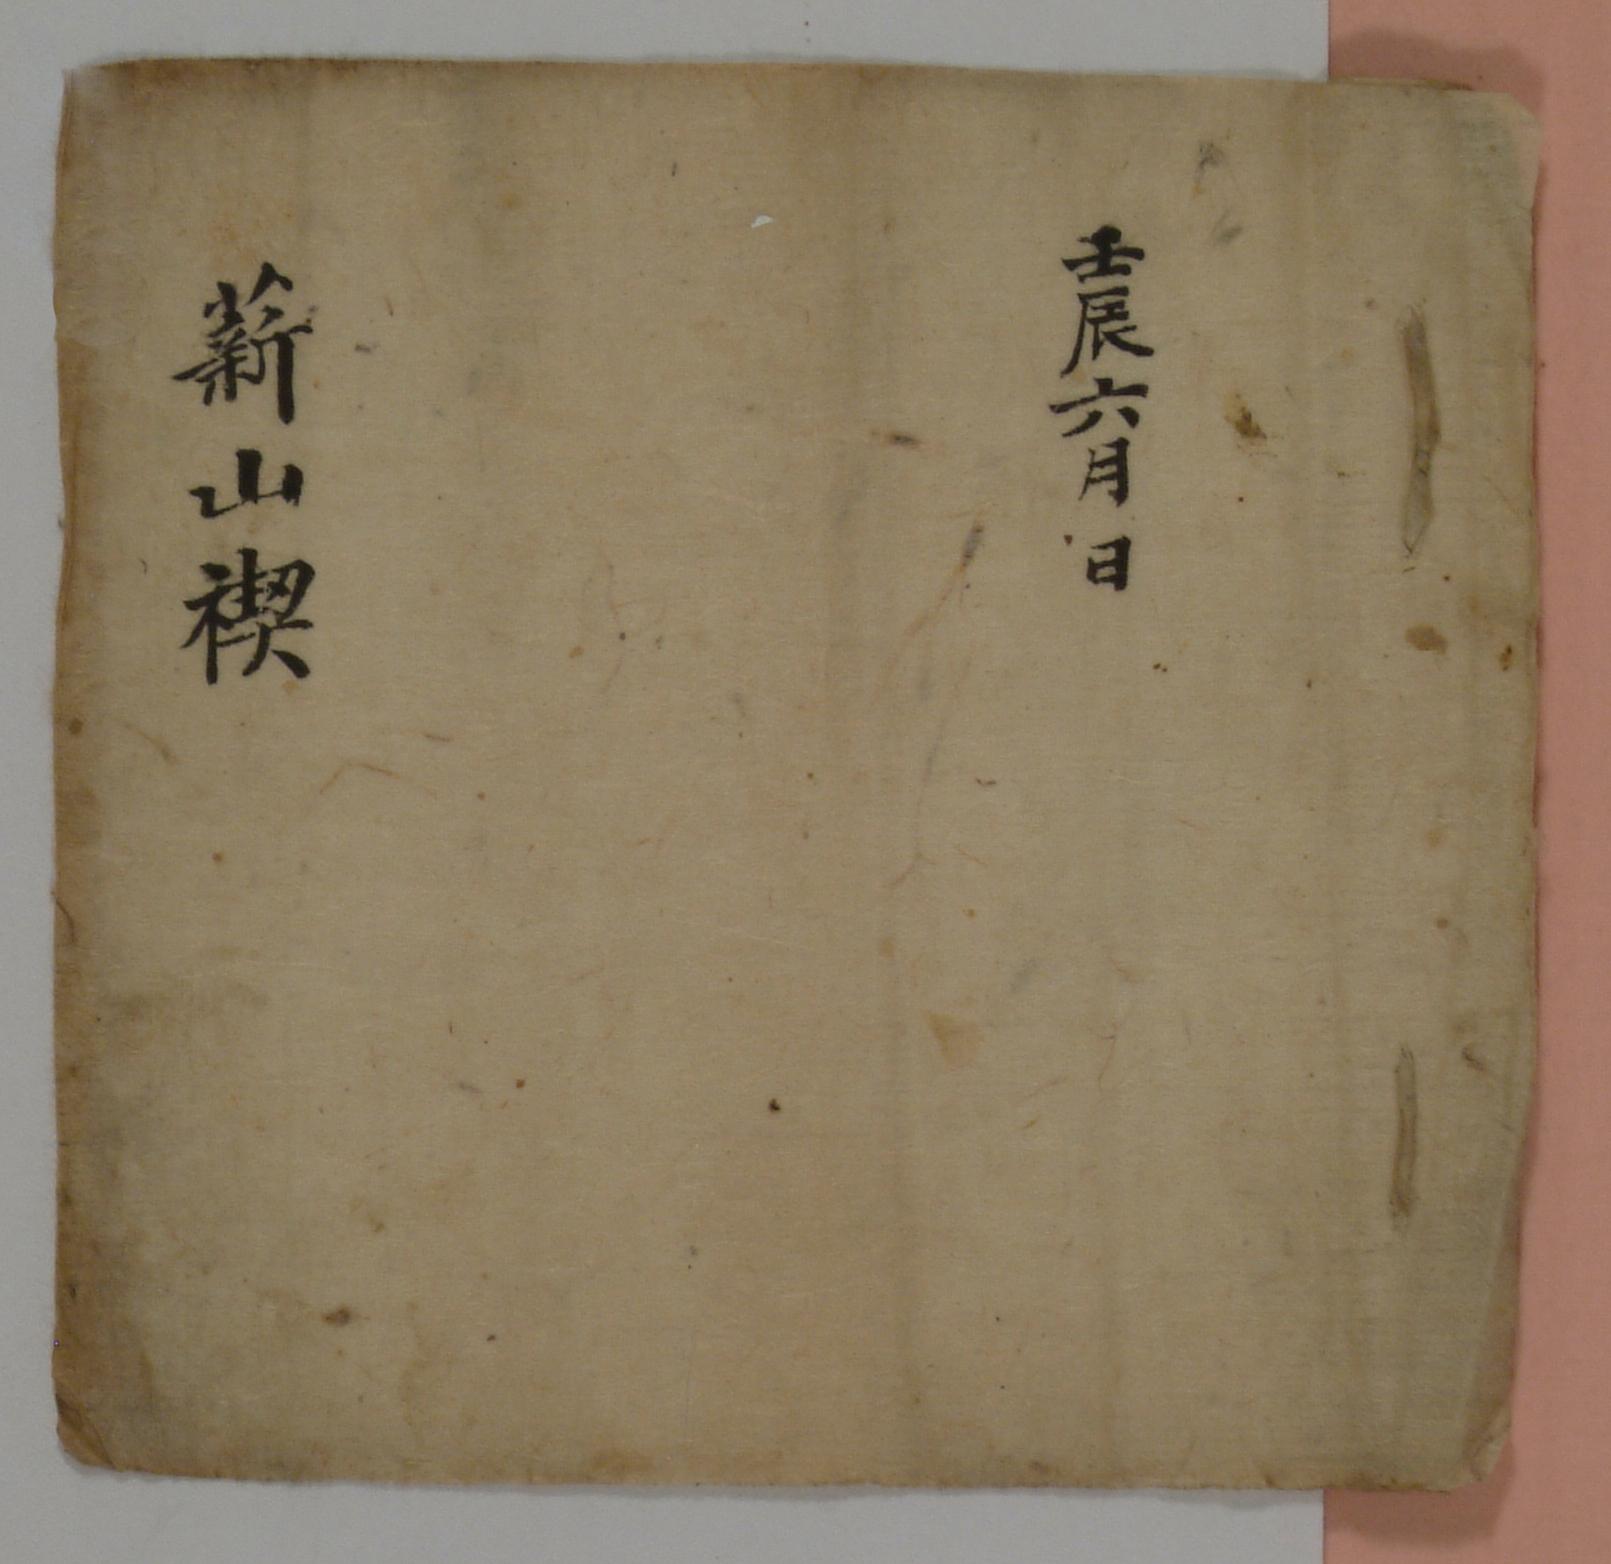 壬辰六月 日
薪山禊